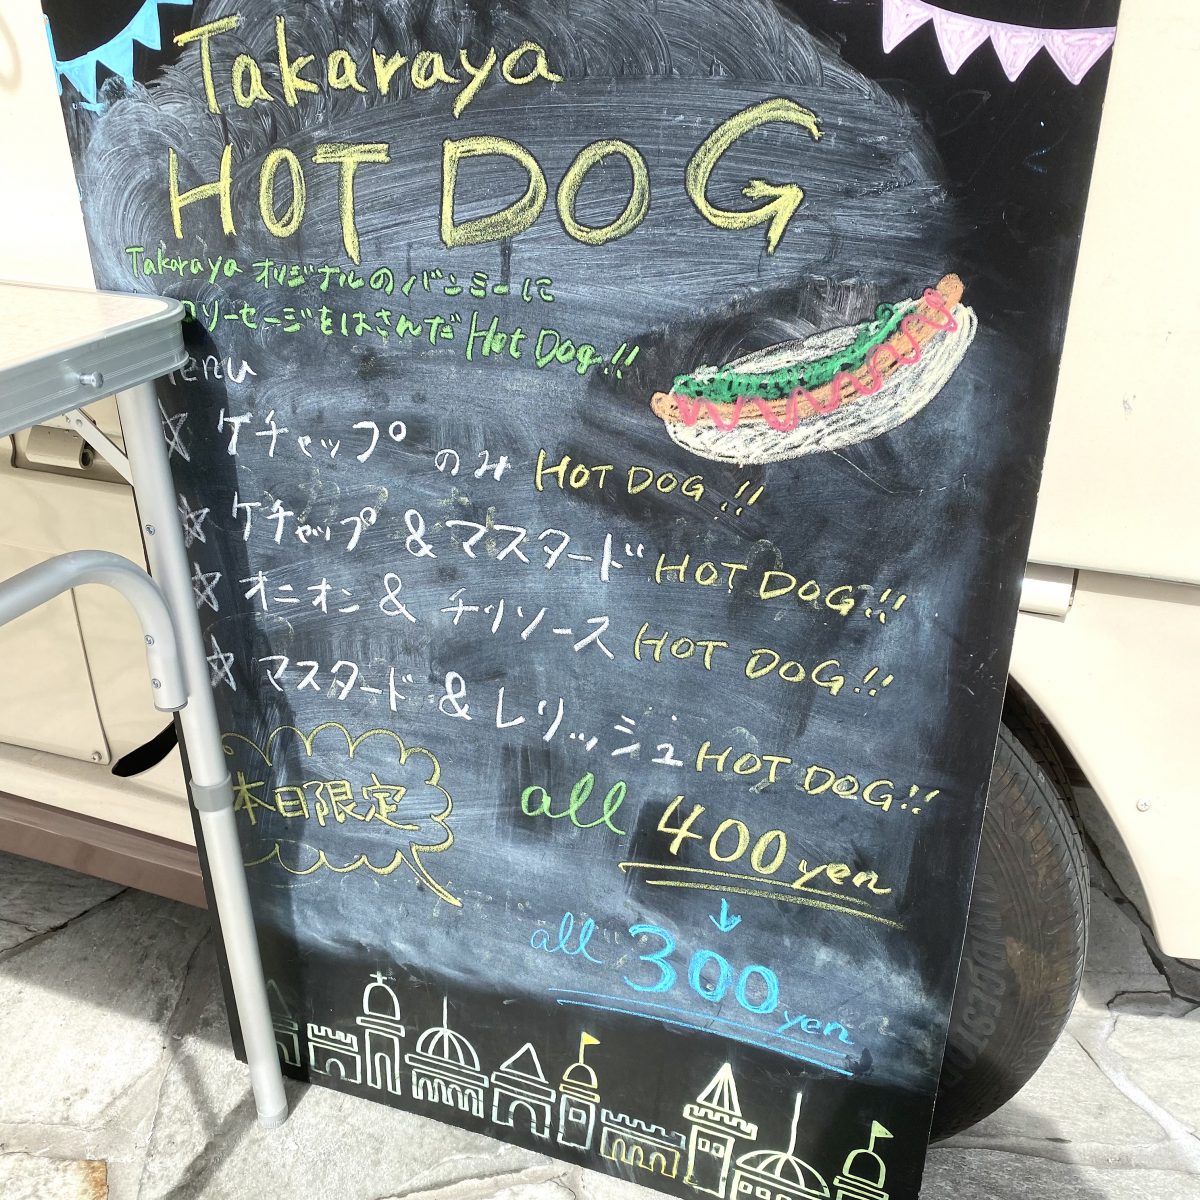 Takaraya
HOT DOG
Takaraya オリジナルのバンミーに
ソーセージをはさんだ Hot Dog!!
menu
☆ ケチャップ のみ HOT DOG!!
☆ ケチャップ & マスタード HOT DOG!!
☆ オニオン & チリソース HOT DOG!!
☆ マスタード & レリッシュ HOT DOG!!
本日限定
all 400 yen
↓
all 300 yen